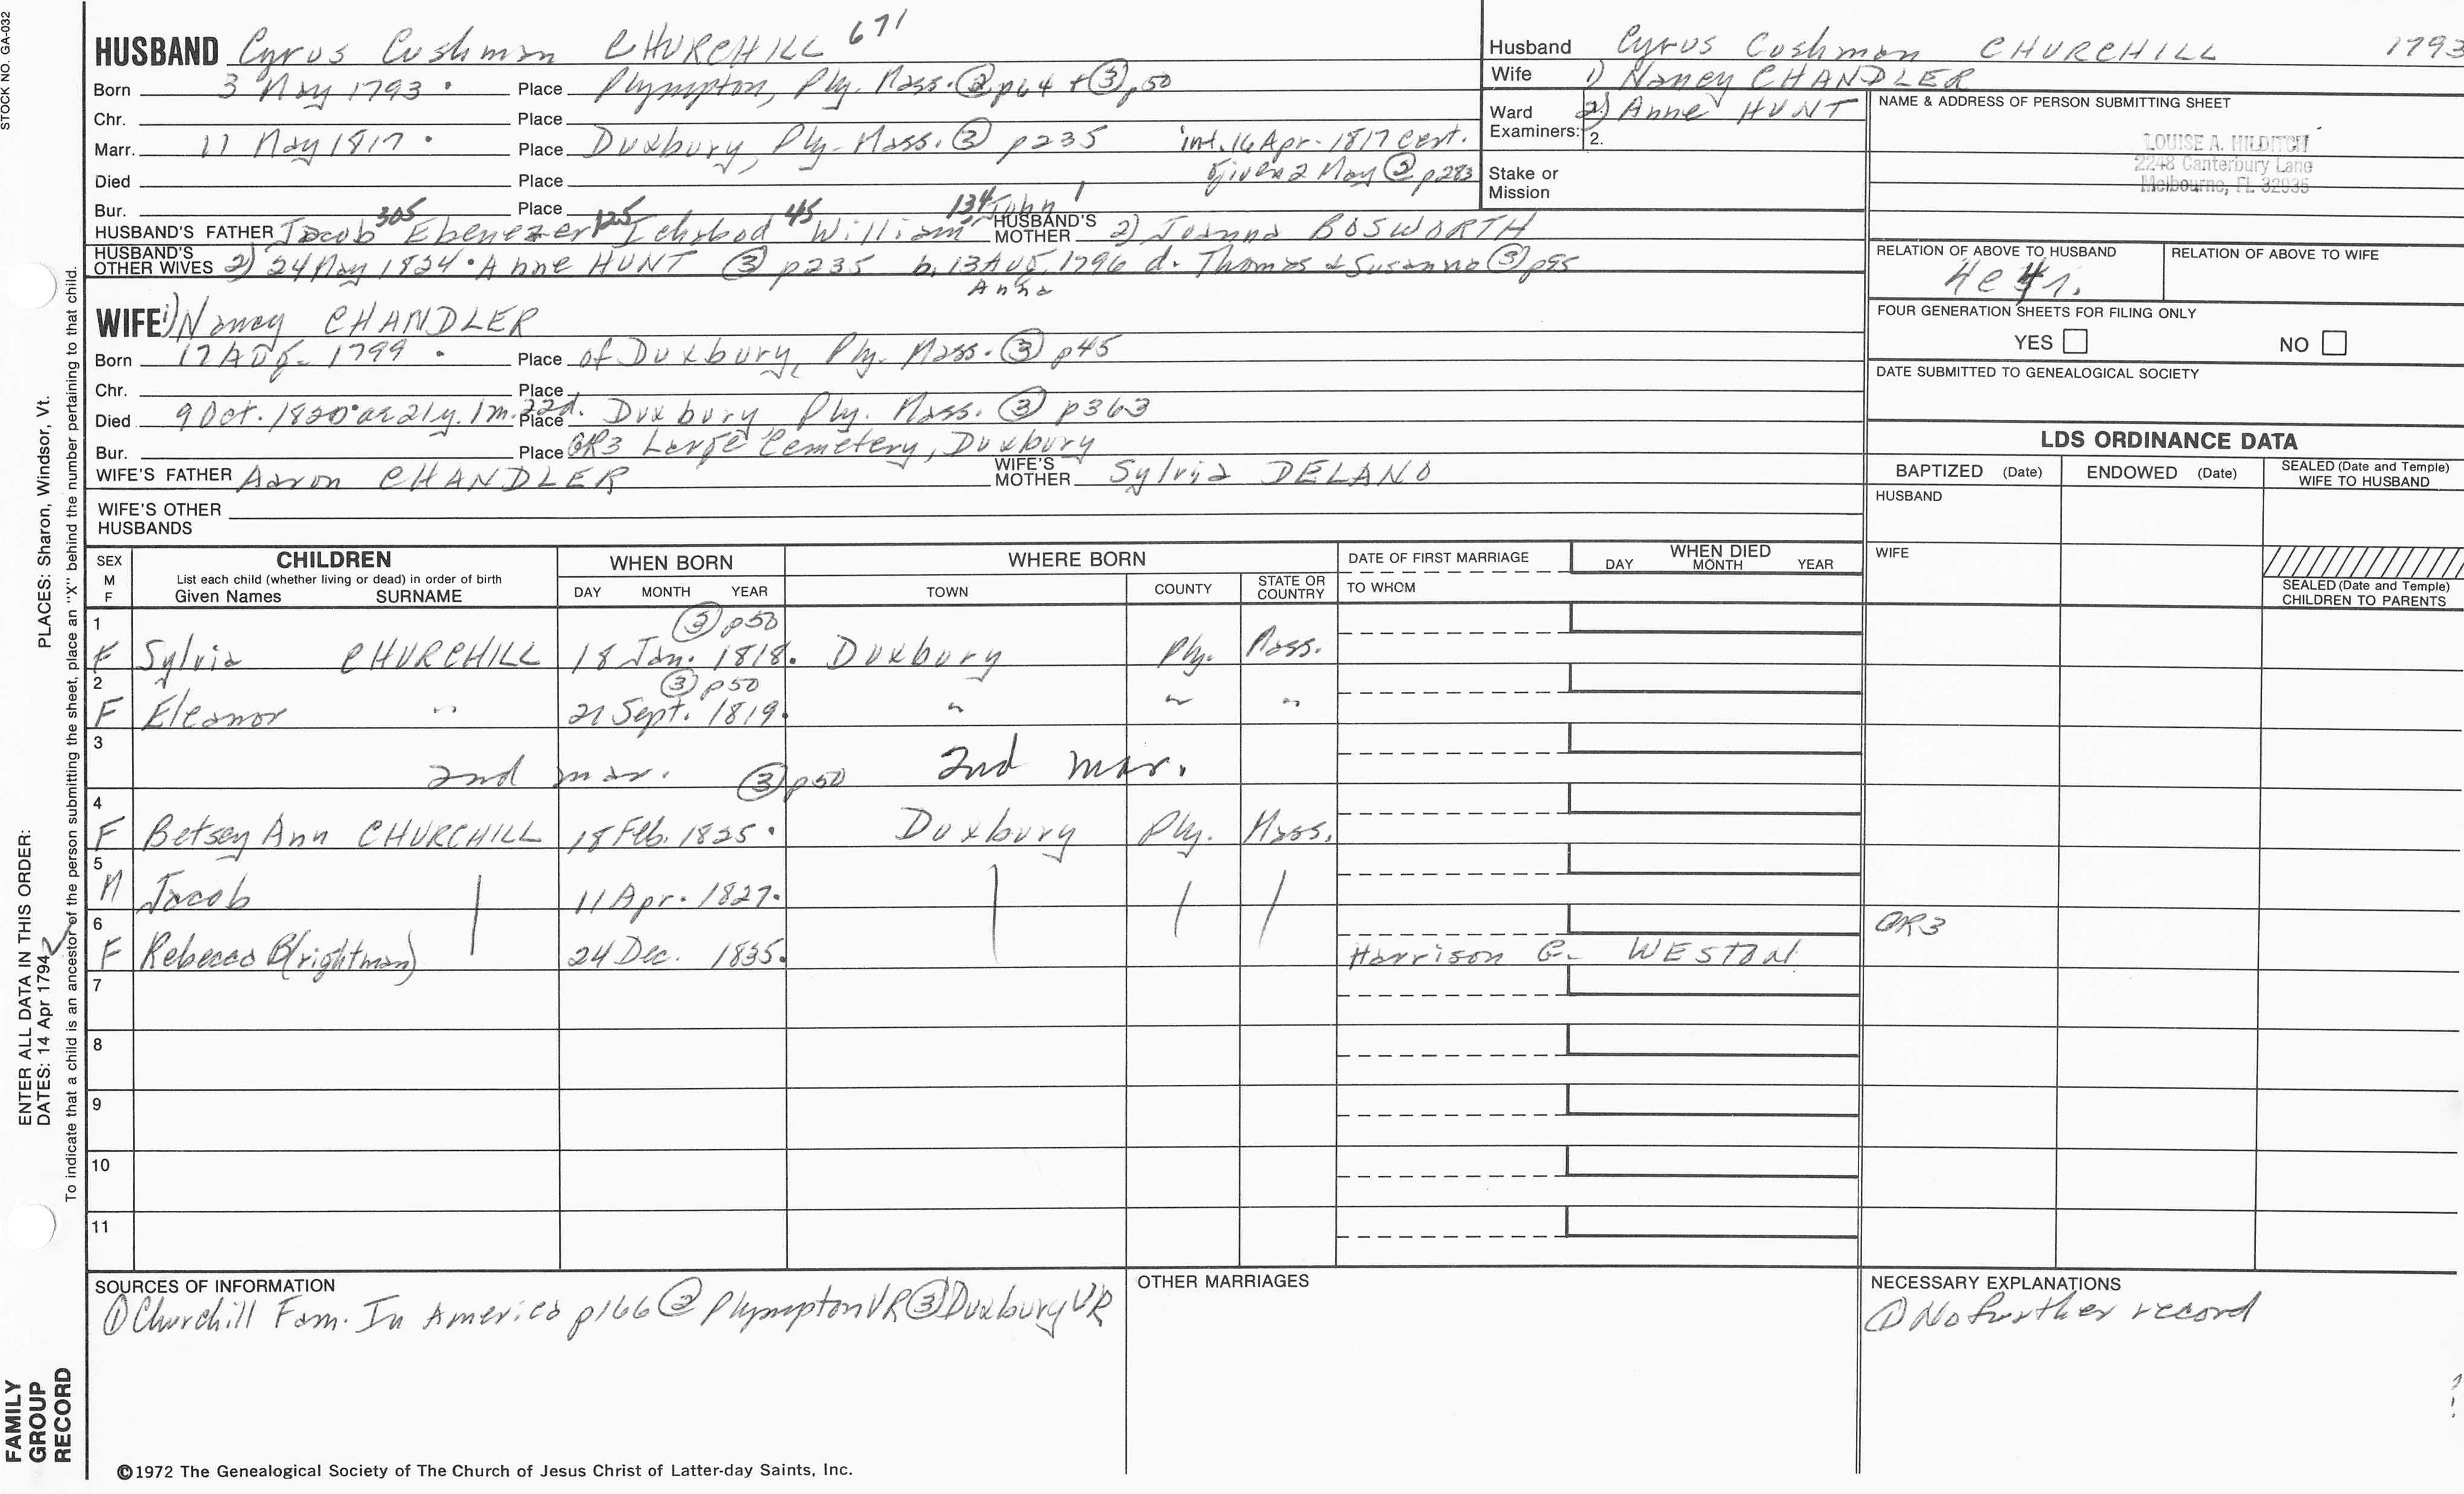 STOCK NO. GA-032
HUSBAND Cyrus Cushman CHURCHILL 671
Born 3 May 1793 • Place Plympton, Ply. Mass. ② p64 + ③ p50
Chr. Place
Marr. 11 May 1817 • Place Duxbury, Ply. Mass. ③ p235 int. 16 Apr. 1817 cert.
given 2 May ③ p283
Died Place
Bur. Place
305 125 45 134 John 1
HUSBAND'S FATHER Jacob Ebenezer Ichabod William HUSBAND'S MOTHER 2) Joanna BOSWORTH
HUSBAND'S OTHER WIVES 2) 24 May 1824 • Anne HUNT ③ p235 b. 13 Aug. 1796 d. Thomas & Susanna ③ p95
Anna
WIFE 1) Nancy CHANDLER
Born 17 Aug. 1799 • Place of Duxbury, Ply. Mass. ③ p45
Chr. Place
Died 9 Oct. 1820 • ae 21y. 1m. 22d. Place Duxbury Ply. Mass. ③ p363
Bur. Place GR3 Large Cemetery, Duxbury
WIFE'S FATHER Aaron CHANDLER WIFE'S MOTHER Sylvia DELANO
WIFE'S OTHER HUSBANDS
Husband Cyrus Cushman CHURCHILL 1793
Wife 1) Nancy CHANDLER
2) Anne HUNT
Ward
Examiners:
2.
Stake or
Mission
NAME & ADDRESS OF PERSON SUBMITTING SHEET
LOUISE A. HILDITCH
2248 Canterbury Lane
Melbourne, FL 32935
RELATION OF ABOVE TO HUSBAND RELATION OF ABOVE TO WIFE
FOUR GENERATION SHEETS FOR FILING ONLY
YES NO
DATE SUBMITTED TO GENEALOGICAL SOCIETY
LDS ORDINANCE DATA
BAPTIZED (Date) ENDOWED (Date) SEALED (Date and Temple)
WIFE TO HUSBAND
HUSBAND
WIFE
SEALED (Date and Temple)
CHILDREN TO PARENTS
SEX
M
F
CHILDREN
List each child (whether living or dead) in order of birth
Given Names SURNAME
WHEN BORN
DAY MONTH YEAR
WHERE BORN
TOWN COUNTY STATE OR COUNTRY
DATE OF FIRST MARRIAGE
TO WHOM
WHEN DIED
DAY MONTH YEAR
1 ③ p50
F Sylvia CHURCHILL 18 Jan. 1818. Duxbury Ply. Mass.
2 ③ p50
F Eleanor " 21 Sept. 1819. " " "
3
2nd mar. ③ p50 2nd mar.
4
F Betsey Ann CHURCHILL 18 Feb. 1825 • Duxbury Ply. Mass.
5
M Jacob | 11 Apr. 1827. | | |
6 GR3
F Rebecca B(rightman) 24 Dec. 1835. Harrison G. WESTON
7
8
9
10
11
SOURCES OF INFORMATION
① Churchill Fam. In America p166 ② Plympton VR ③ Duxbury VR
OTHER MARRIAGES
NECESSARY EXPLANATIONS
① No further record
©1972 The Genealogical Society of The Church of Jesus Christ of Latter-day Saints, Inc.
FAMILY
GROUP
RECORD
ENTER ALL DATA IN THIS ORDER:
DATES: 14 Apr 1794
PLACES: Sharon, Windsor, Vt.
To indicate that a child is an ancestor of the person submitting the sheet, place an "X" behind the number pertaining to that child.